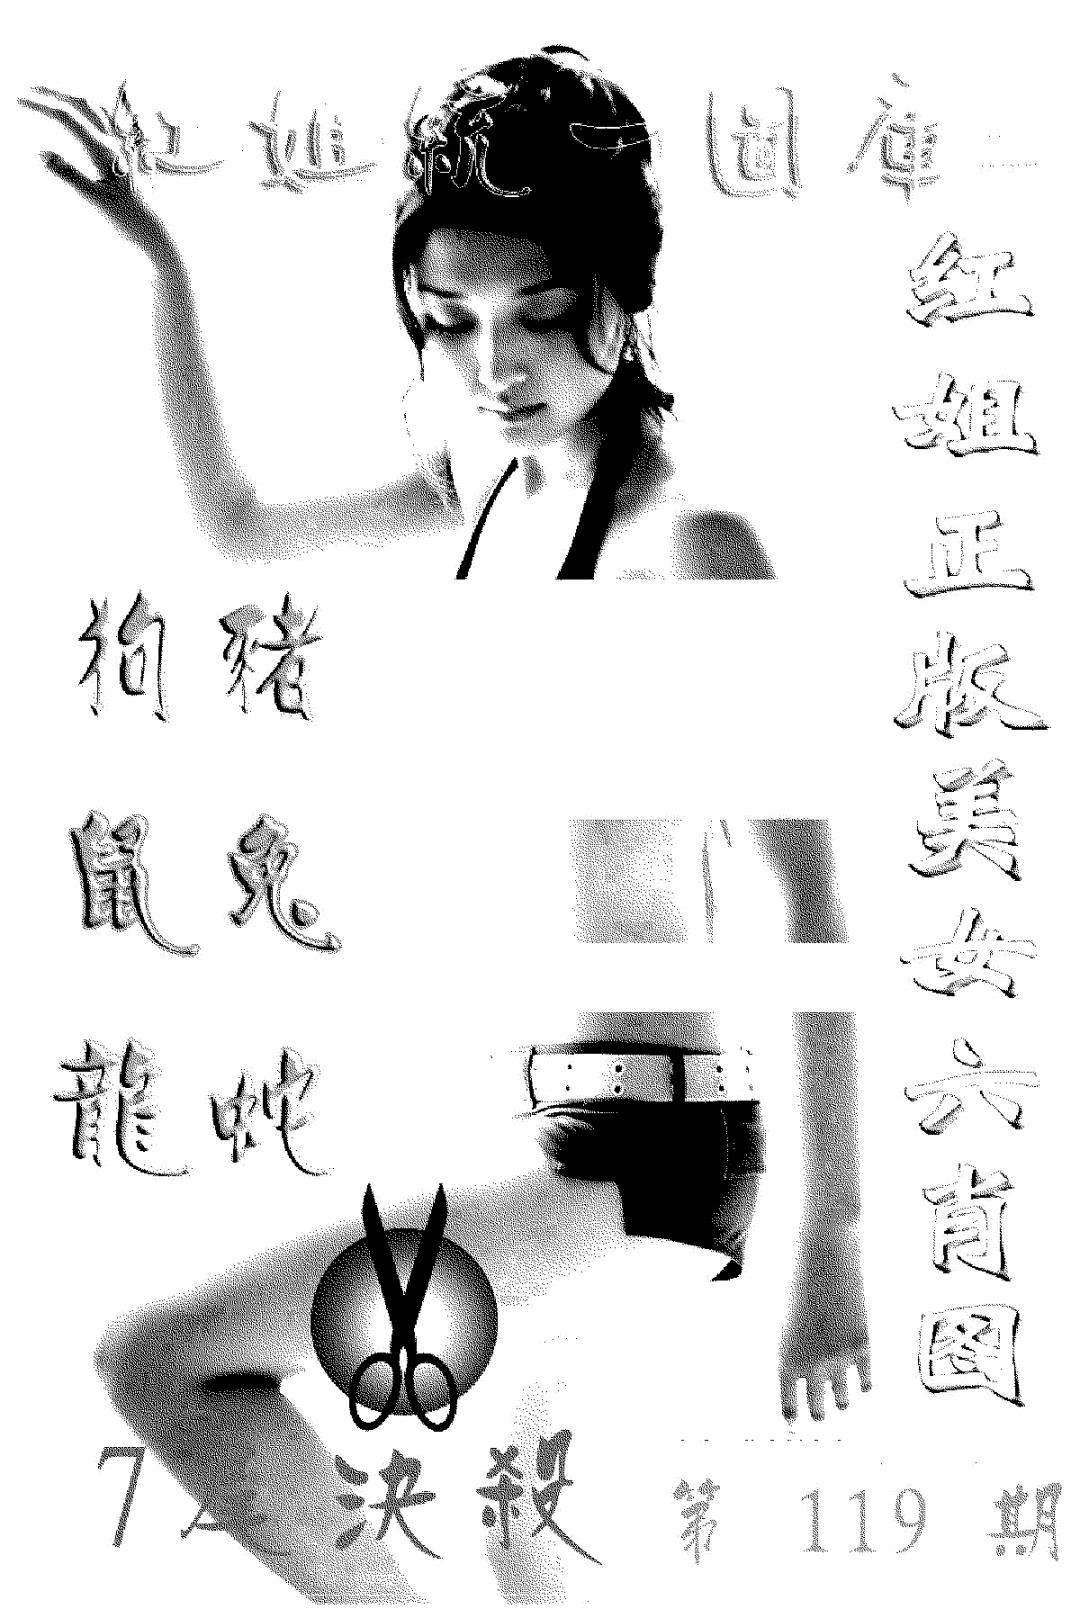 紅姐統一圖庫
紅姐正版美女六肖圖
狗豬
鼠兔
龍蛇
7 決殺
第119期